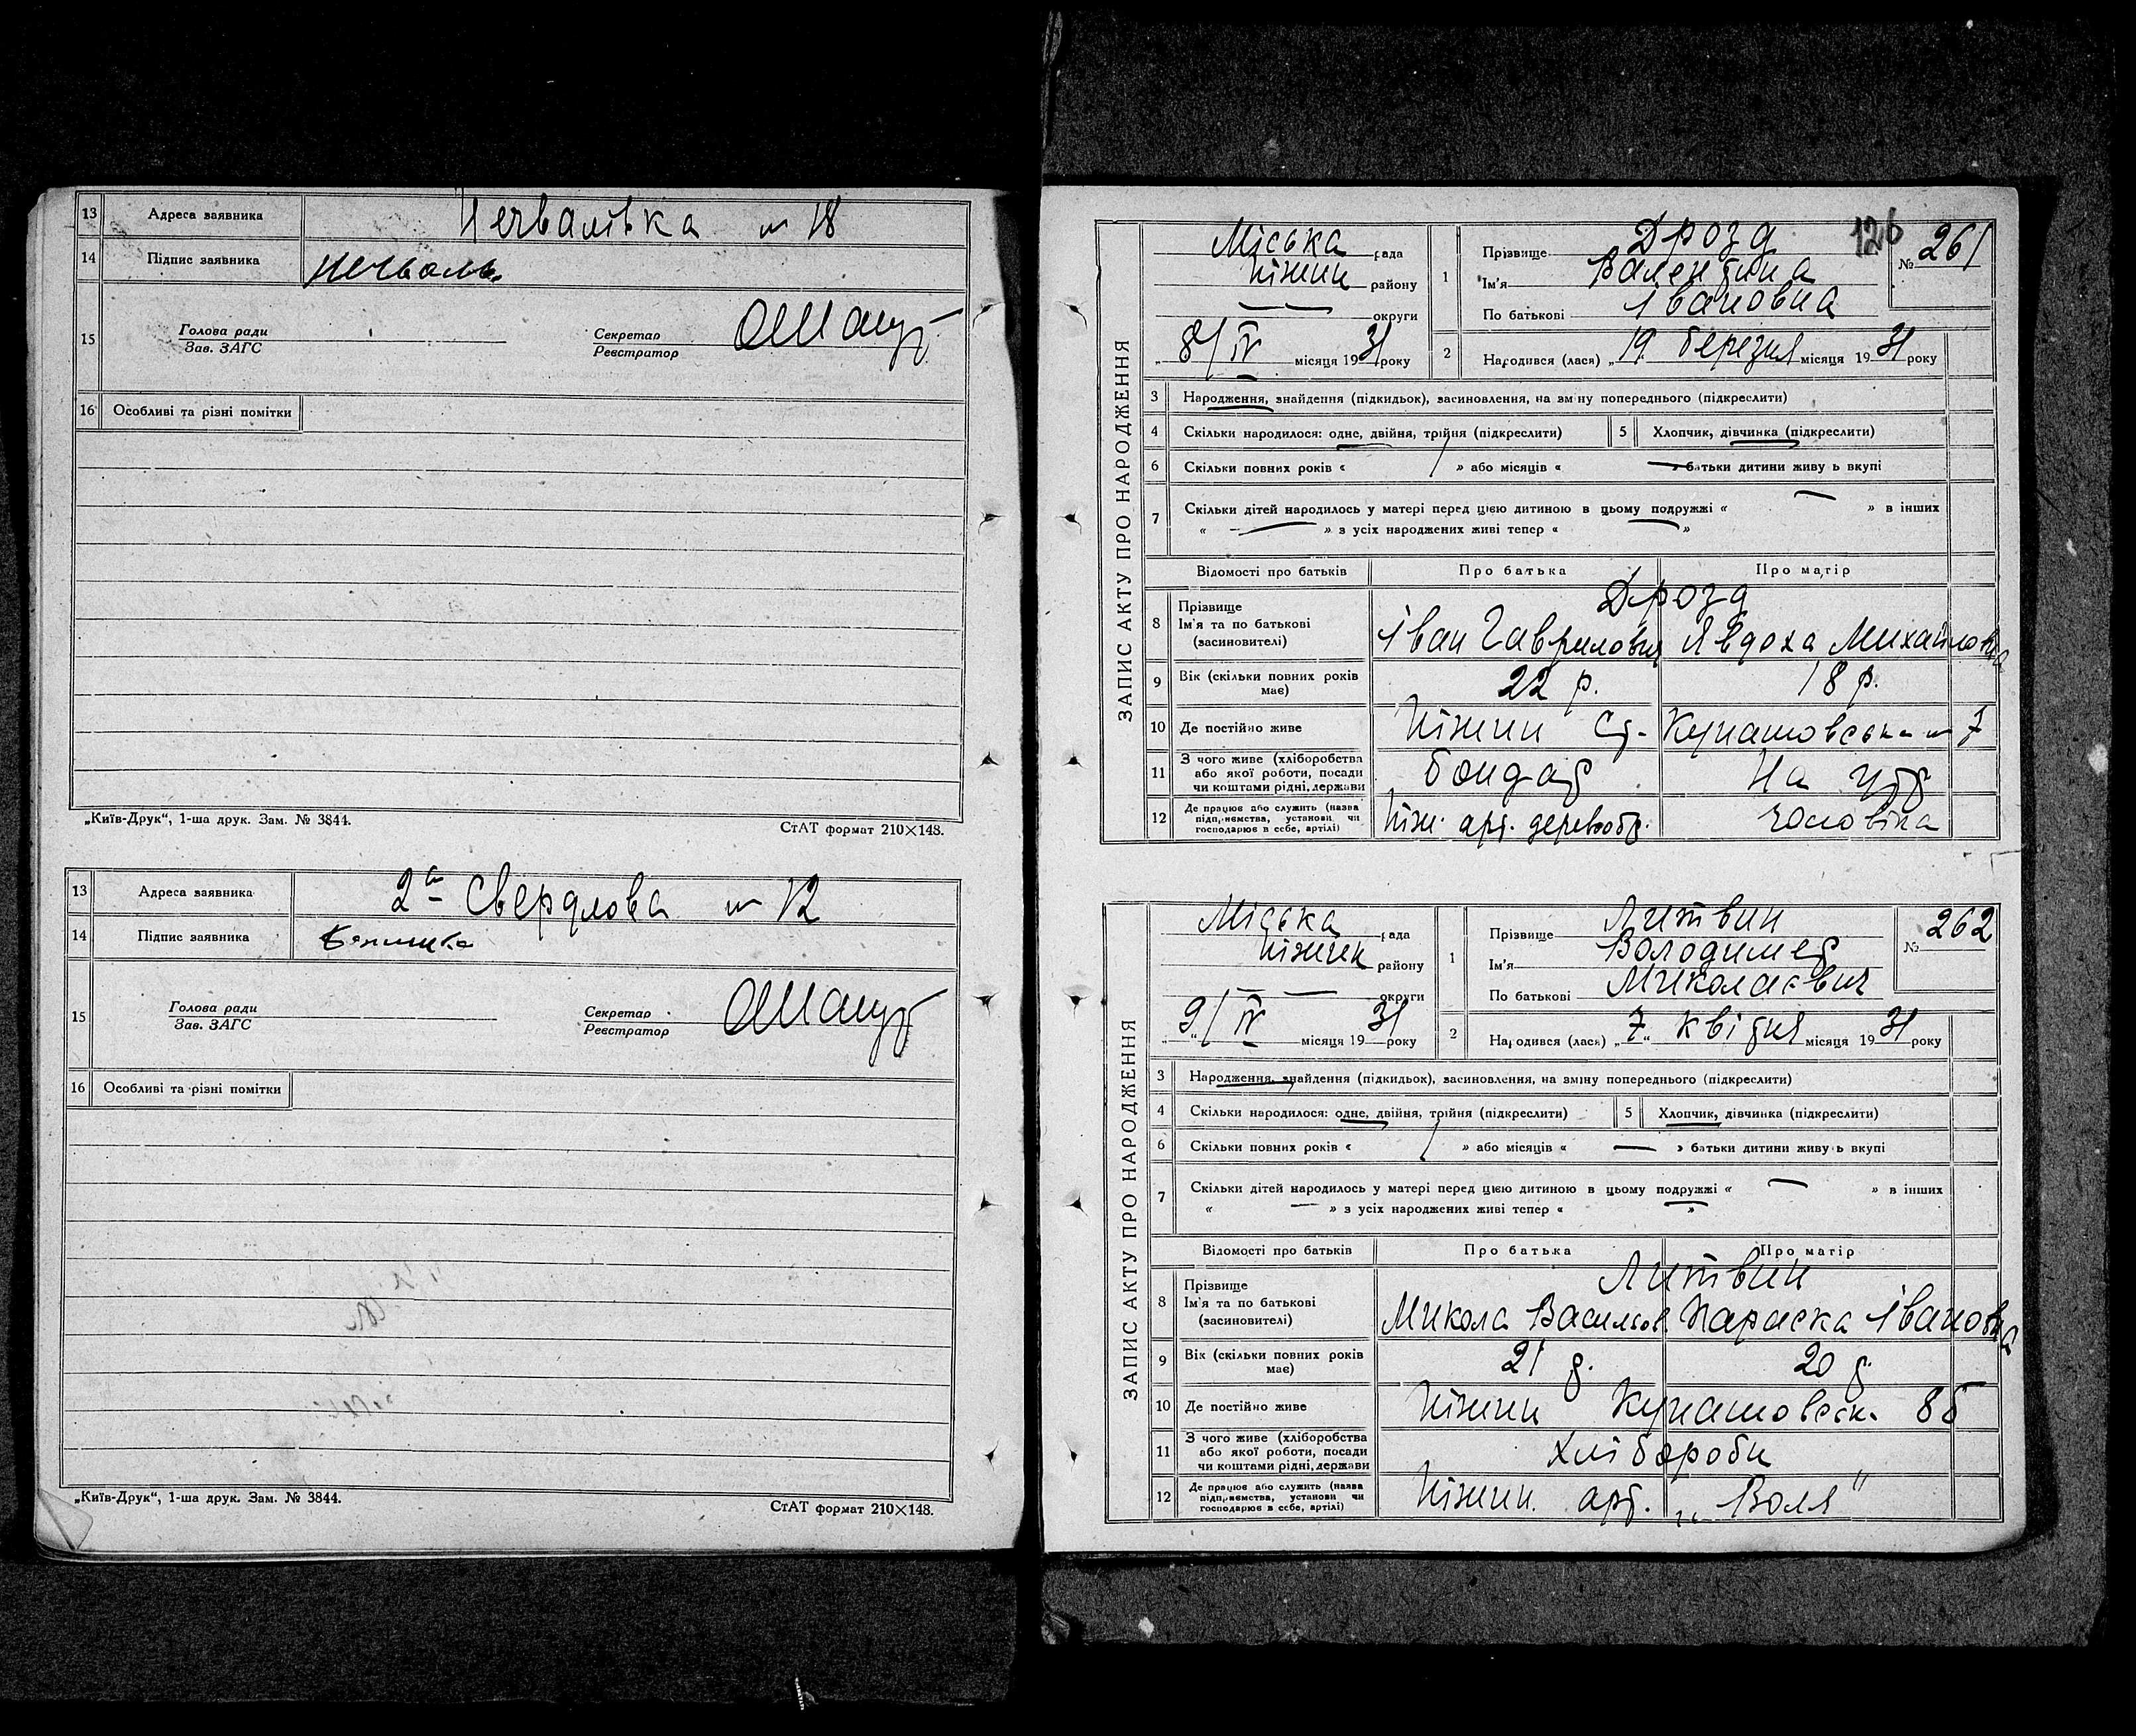 13 Адреса заявника № 18
14 Підпис заявника
15 Голова ради Секретар
Зав. ЗАГС Реєстратор
16 Особливі та різні помітки
„Київ-Друк“, 1-ша друк. Зам. № 3844. СтАТ формат 210×148.
13 Адреса заявника 2а Свердлова № 12
14 Підпис заявника
15 Голова ради Секретар
Зав. ЗАГС Реєстратор
16 Особливі та різні помітки
„Київ-Друк“, 1-ша друк. Зам. № 3844. СтАТ формат 210×148.
126
ЗАПИС АКТУ ПРО НАРОДЖЕННЯ
Міська рада
Ніжин району
округи
8/IV місяця 1931 року
1 Прізвище Дрозд № 261
Ім'я Валентина
По батькові Івановна
2 Народився (лася) „19 березня місяця 1931 року
3 Народження, знайдення (підкидьок), засиновлення, на зміну попереднього (підкреслити)
4 Скільки народилося: одне, двійня, трійня (підкреслити) 5 Хлопчик, дівчинка (підкреслити)
6 Скільки повних років « / » або місяців « — » батьки дитини живуть вкупі
7 Скільки дітей народилось у матері перед цією дитиною в цьому подружжі « — » в інших
« — » з усіх народжених живі тепер « — »
Відомості про батьків Про батька Про матір
8 Прізвище Дрозд
Ім'я та по батькові Іван Гаврилович Явдоха Михайловна
(засиновителі)
9 Вік (скільки повних років має) 22 р. 18 р.
10 Де постійно живе Ніжин Ст- Кунашовська № 7
11 З чого живе (хліборобства або якої роботи, посади чи коштами рідні, держави бондар На утр
12 Де працює або служить (назва підприємства, установи чи господарює в себе, артілі) Ніж. арт. деревообр. чоловіка
ЗАПИС АКТУ ПРО НАРОДЖЕННЯ
Міська рада
Ніжин району
округи
9/IV місяця 1931 року
1 Прізвище Литвин № 262
Ім'я Володимер
По батькові Миколаєвич
2 Народився (лася) „7“ квітня місяця 1931 року
3 Народження, знайдення (підкидьох), засиновлення, на зміну попереднього (підкреслити)
4 Скільки народилося: одне, двійня, трійня (підкреслити) 5 Хлопчик, дівчинка (підкреслити)
6 Скільки повних років « / » або місяців « — » батьки дитини живуть вкупі
7 Скільки дітей народилось у матері перед цією дитиною в цьому подружжі « — » в інших
« — » з усіх народжених живі тепер « — »
Відомості про батьків Про батька Про матір
8 Прізвище Литвин
Ім'я та по батькові Микола Васильов Параска Івановна
(засиновителі)
9 Вік (скільки повних років має) 21 р. 20 р.
10 Де постійно живе Ніжин Кунашовськ. 85
11 З чого живе (хліборобства або якої роботи, посади чи коштами рідні, держави хлібороби
12 Де працює або служить (назва підприємства, установи чи господарює в себе, артілі) Ніжин. арт. „Воля"